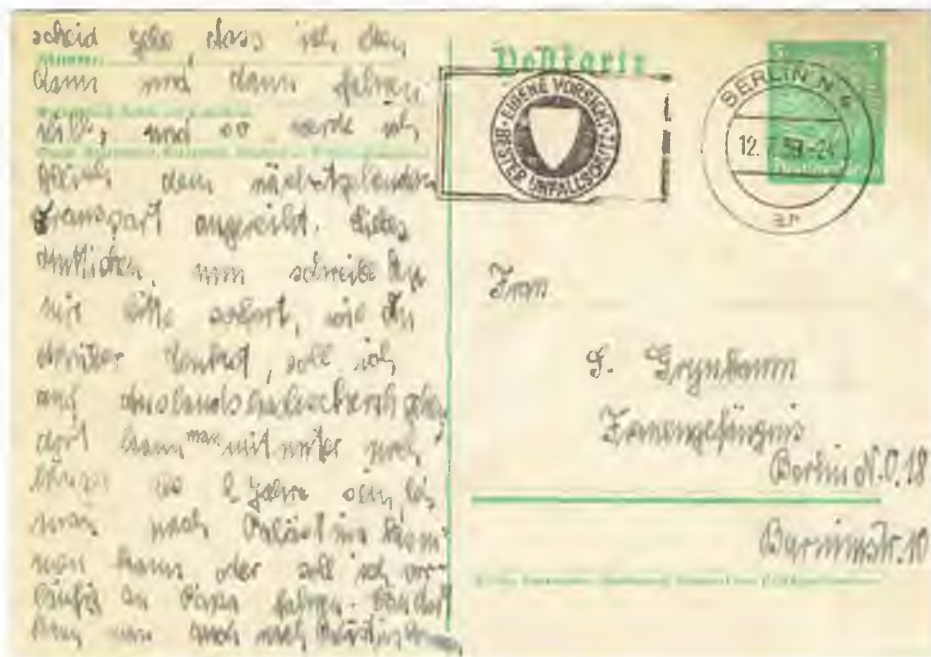 scheid gebe, dass ich dann
dann und dann fahren
will, und so werde ich
gleich dem nächstgehenden
Transport angereiht. Liebes
Muttichen, nun schreibe Du
mir bitte sofort, wie Du
darüber denkst, soll ich
auf Auslandshachscharah gehen
dort kann man mitunter noch
so 2 Jahre sein, bis
man nach Palästina kom-
men kann oder soll ich vor-
läufig zu Papa fahren. Von dort
kann man auch nach Palästina
Postkarte
EIGENE VORSICHT
BESTER UNFALLSCHUTZ
BERLIN N 4
12. 7. 39.-24
ar
Frau
G. Grynbaum
Frauengefängnis
Berlin N.O. 18
Barnimstr. 10